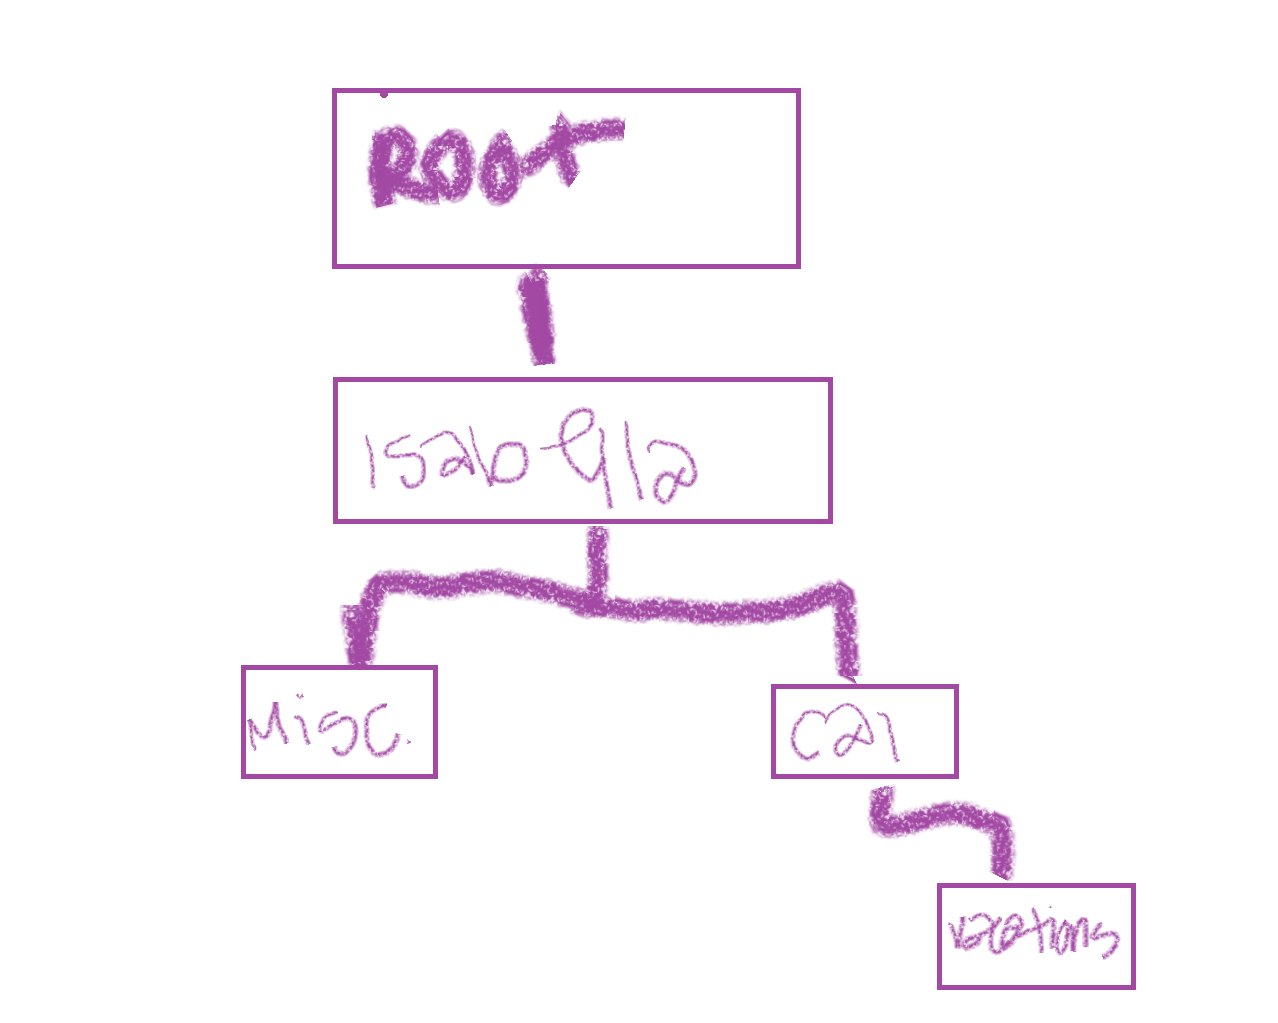 Root
Isabella
Misc.
Cal
vacations